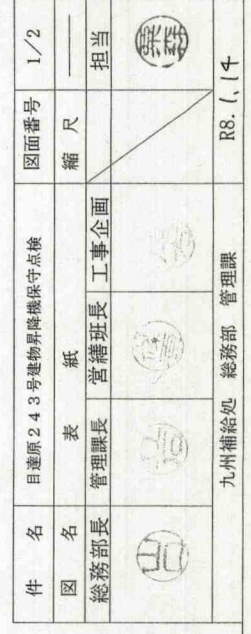 件名 目達原243号建物昇降機保守点検 図面番号 1/2
図名 表紙 縮尺 ―――
総務部長 管理課長 営繕班長 工事企画 担当
九州補給処 総務部 管理課 R8.1.14